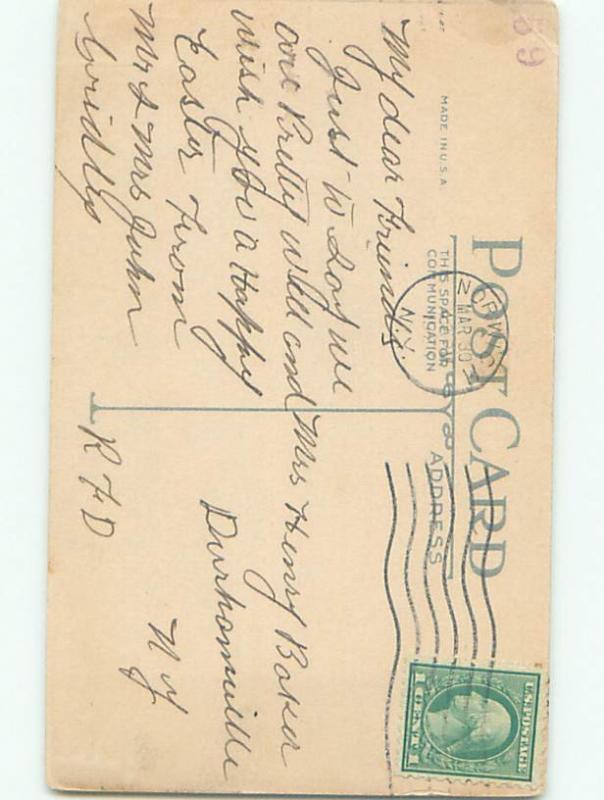 59
MADE IN U.S.A.
POST CARD
THIS SPACE FOR
COMMUNICATION
ADDRESS
MAR 30
N.Y.
US POSTAGE
1 CENT 1
My dear Friends
Just to Say we
are Pretty well and
wish you a Happy
Easter From
Mr & Mrs John
Mrs Henry Baker
Durhamville
N Y
R F D